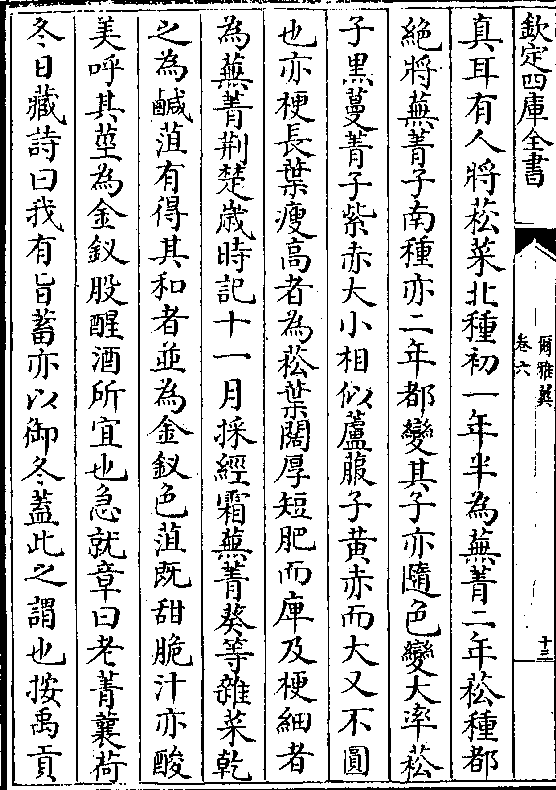 欽定四庫全書
爾雅翼
卷六
十三
真耳有人將菘菜北種初一年半為蕪菁二年菘種都
絶將蕪菁子南種亦二年都變其子亦隨色變大率菘
子黒蔓菁子紫赤大小相似蘆菔子黄赤而大又不圓
也亦梗長葉瘦高者為菘葉闊厚短肥而庳及梗細者
為蕪菁荆楚嵗時記十一月採經霜蕪菁葵等雜菜乾
之為鹹菹有得其和者並為金釵色菹既甜脆汁亦酸
美呼其莖為金釵股醒酒所宜也急就章曰老菁蘘荷
冬日藏詩曰我有旨蓄亦以御冬蓋此之謂也按禹貢